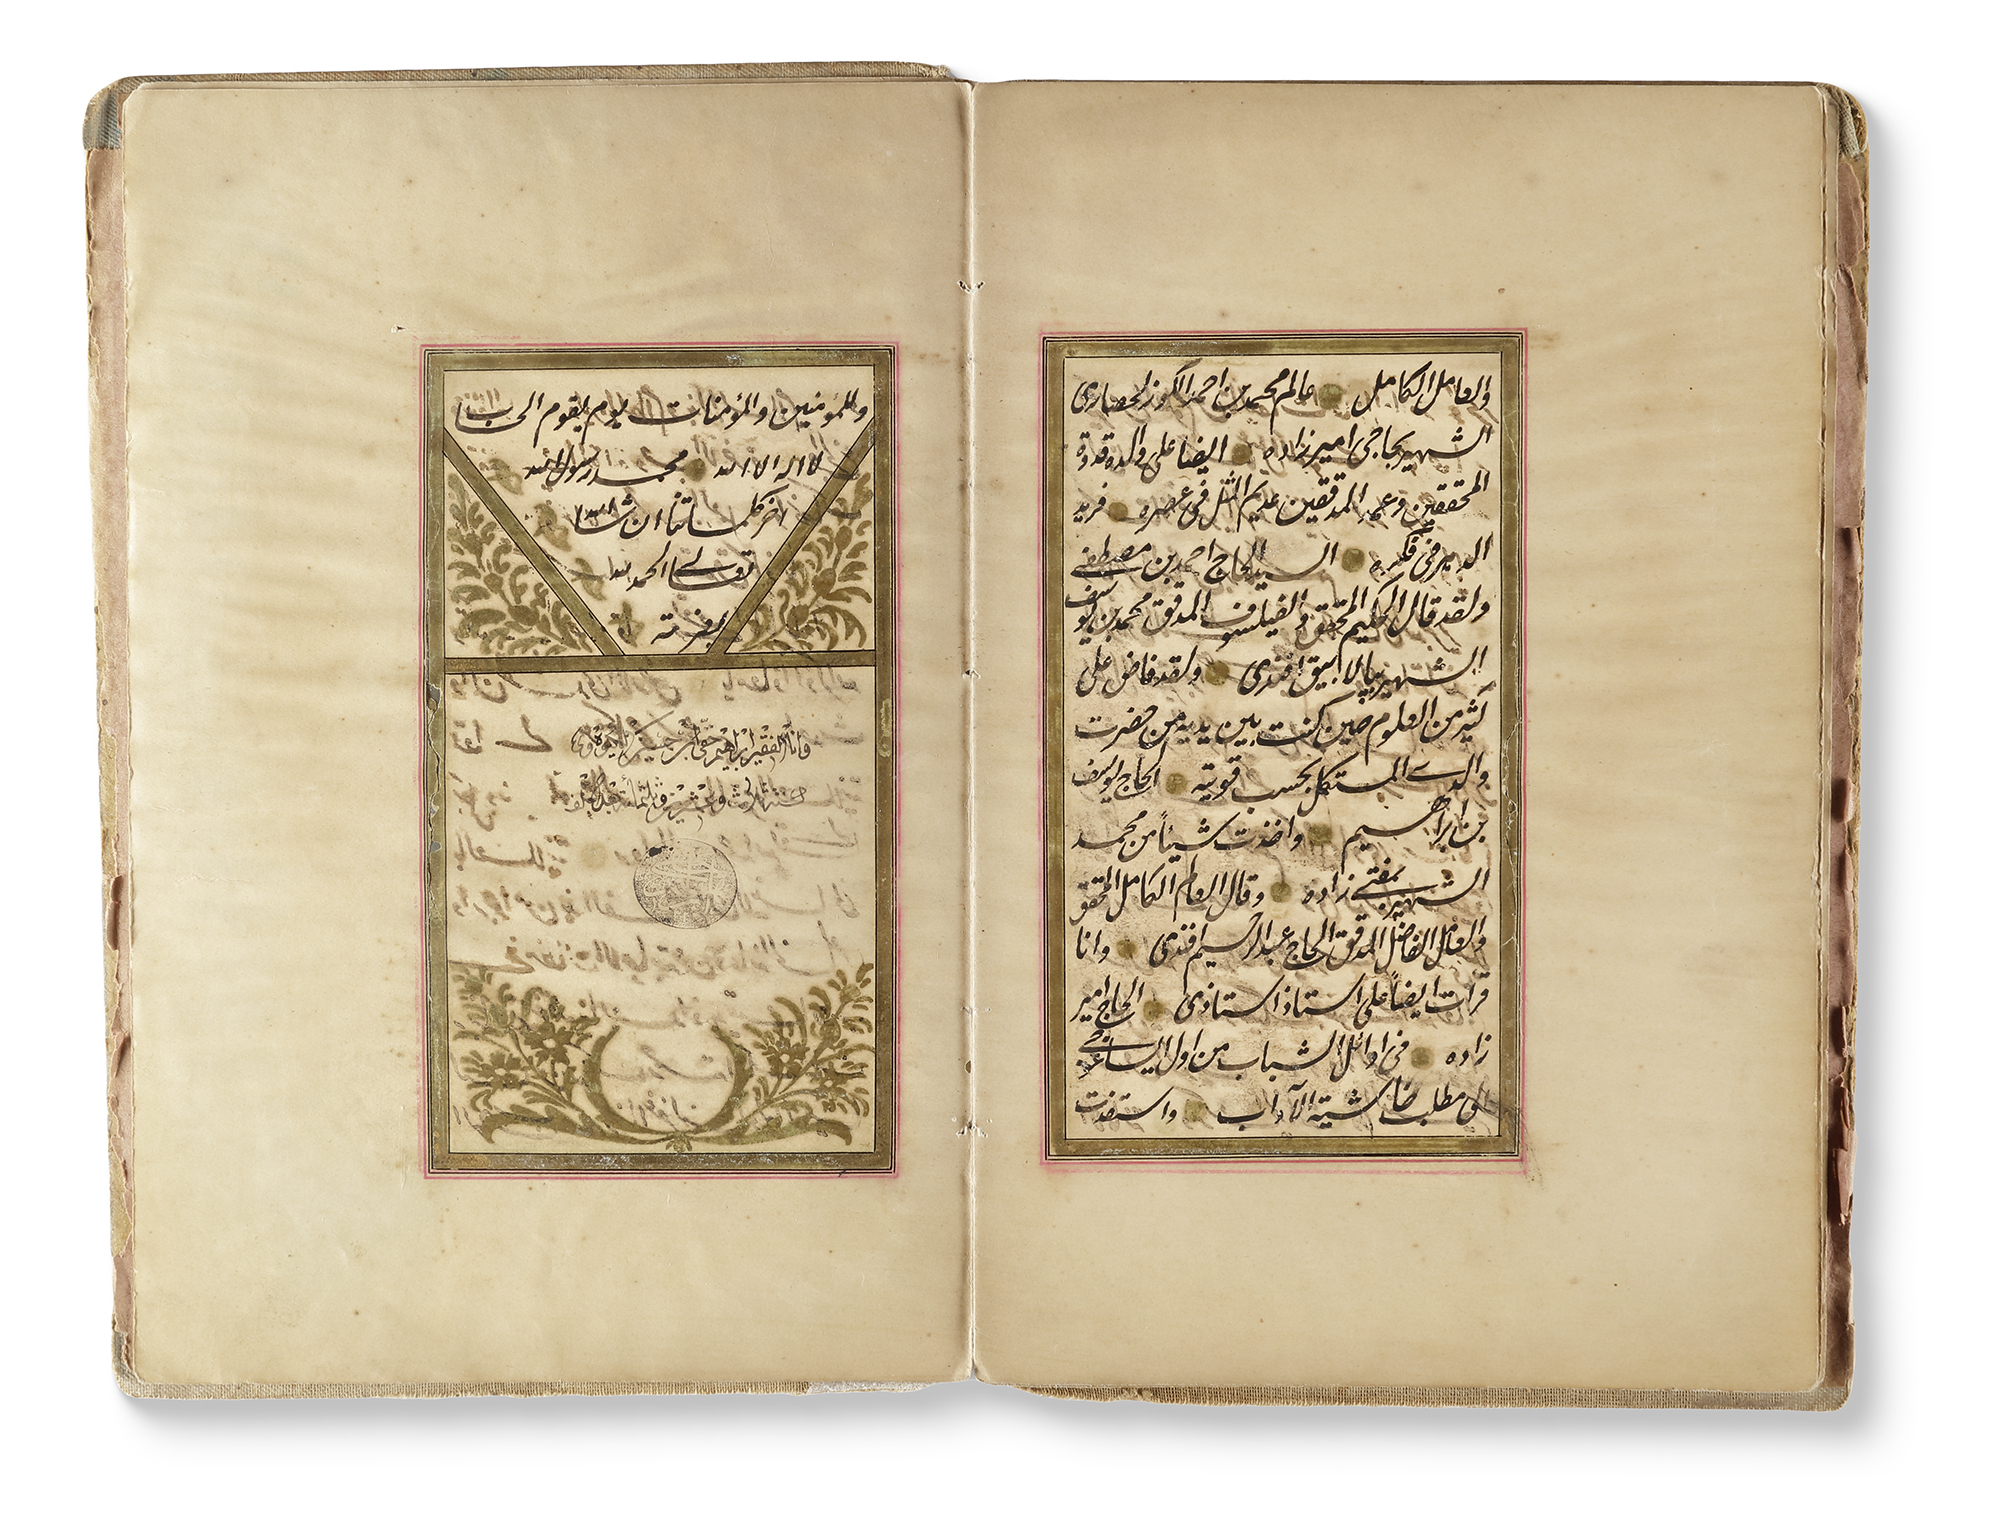 والعامل الكامل عالم محمد بن احمد الكوز الحصاري
الشهير بحاجي امير زاده ايضا على والده قدوة
المحققين وعمد المدققين عديم المثل في عصره فريد
الدهر في فكره السيد الحاج احمد بن مصطفى
ولقد قال الحكيم المحقق والفيلسوف المدقق محمد بن يوسف
الشهير ببالا بيق افندى ولقد فاض على
كثير من العلوم حين كنت بين يديه من حضرت
والدى المستكمل بحسب قوتيه الحاج يوسف
بن ابراهيم واخذت شيئاً من محمد
الشهير بمفتى زاده وقال العالم الكامل المحقق
والعامل الفاضل المدقق الحاج عبد الرحيم افندى وانا
قرأت ايضاً على استاذ استاذى الحاج امير
زاده فى اوائل الشباب من اول ايساغوجى
الى مطلب حاشية الآداب واستفدت
وللمؤمنين والمؤمنات يوم يقوم الحساب
لا اله الا الله محمد رسول الله
آخر كلماتنا ان شاء الله
تعالى الحمد لله
وانا الفقير ابراهيم حقى